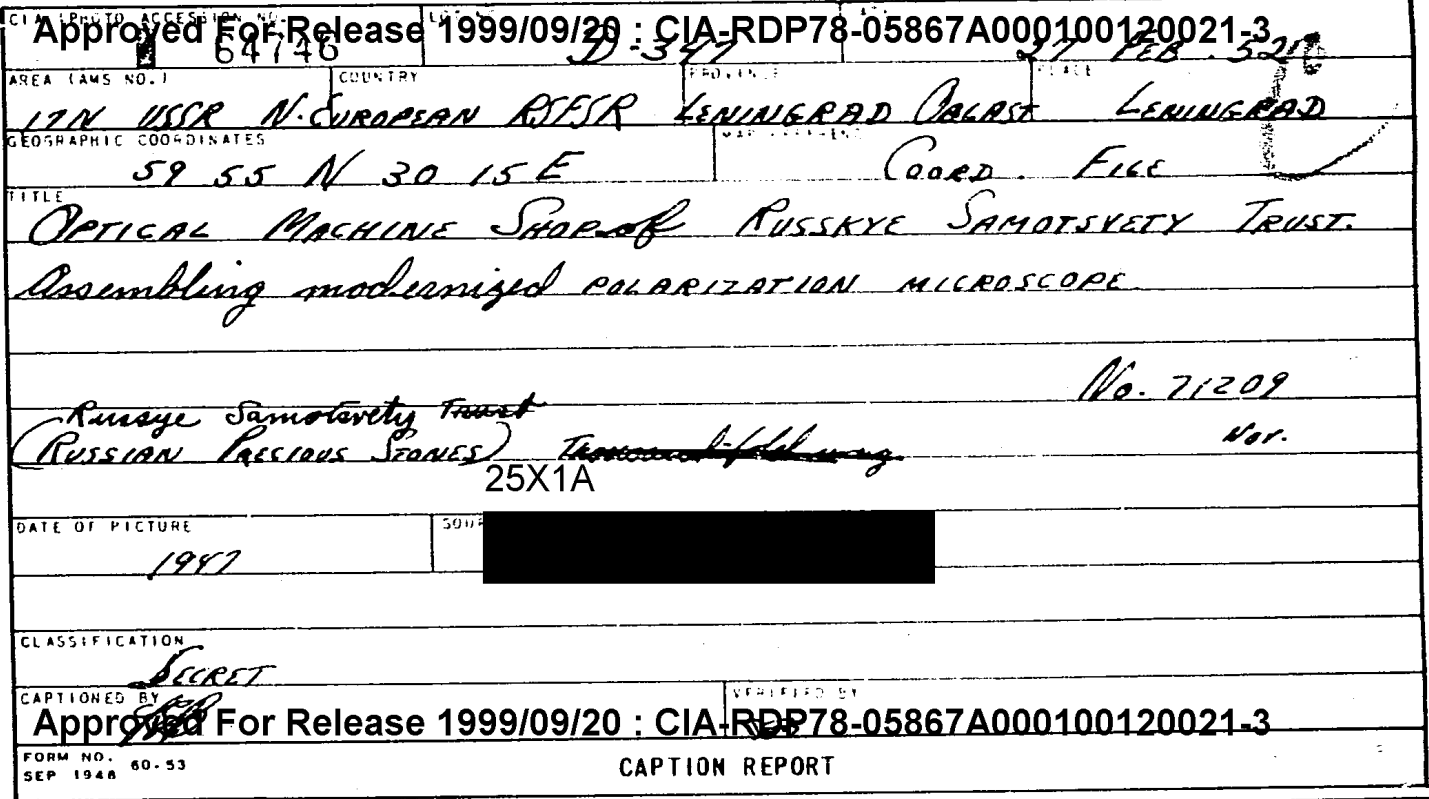 CIA PHOTO ACCESSION NO.
Approved For Release 1999/09/20 : CIA-RDP78-05867A000100120021-3
64746 D-347 27 FEB. 52
AREA (AMS NO.) COUNTRY PROVINCE PLACE
17N USSR N. EUROPEAN RSFSR LENINGRAD OBLAST LENINGRAD
GEOGRAPHIC COORDINATES MAP REFERENCE
59 55 N 30 15 E COORD. FILE
TITLE
OPTICAL MACHINE SHOP of RUSSKYE SAMOTSVETY TRUST.
Assembling modernized POLARIZATION MICROSCOPE
No. 71209
Russye Samotsvety Trust
(RUSSIAN PRECIOUS STONES) Nov.
25X1A
DATE OF PICTURE
1947
CLASSIFICATION
SECRET
CAPTIONED BY VERIFIED BY
Approved For Release 1999/09/20 : CIA-RDP78-05867A000100120021-3
FORM NO. 60-53
SEP 1948
CAPTION REPORT